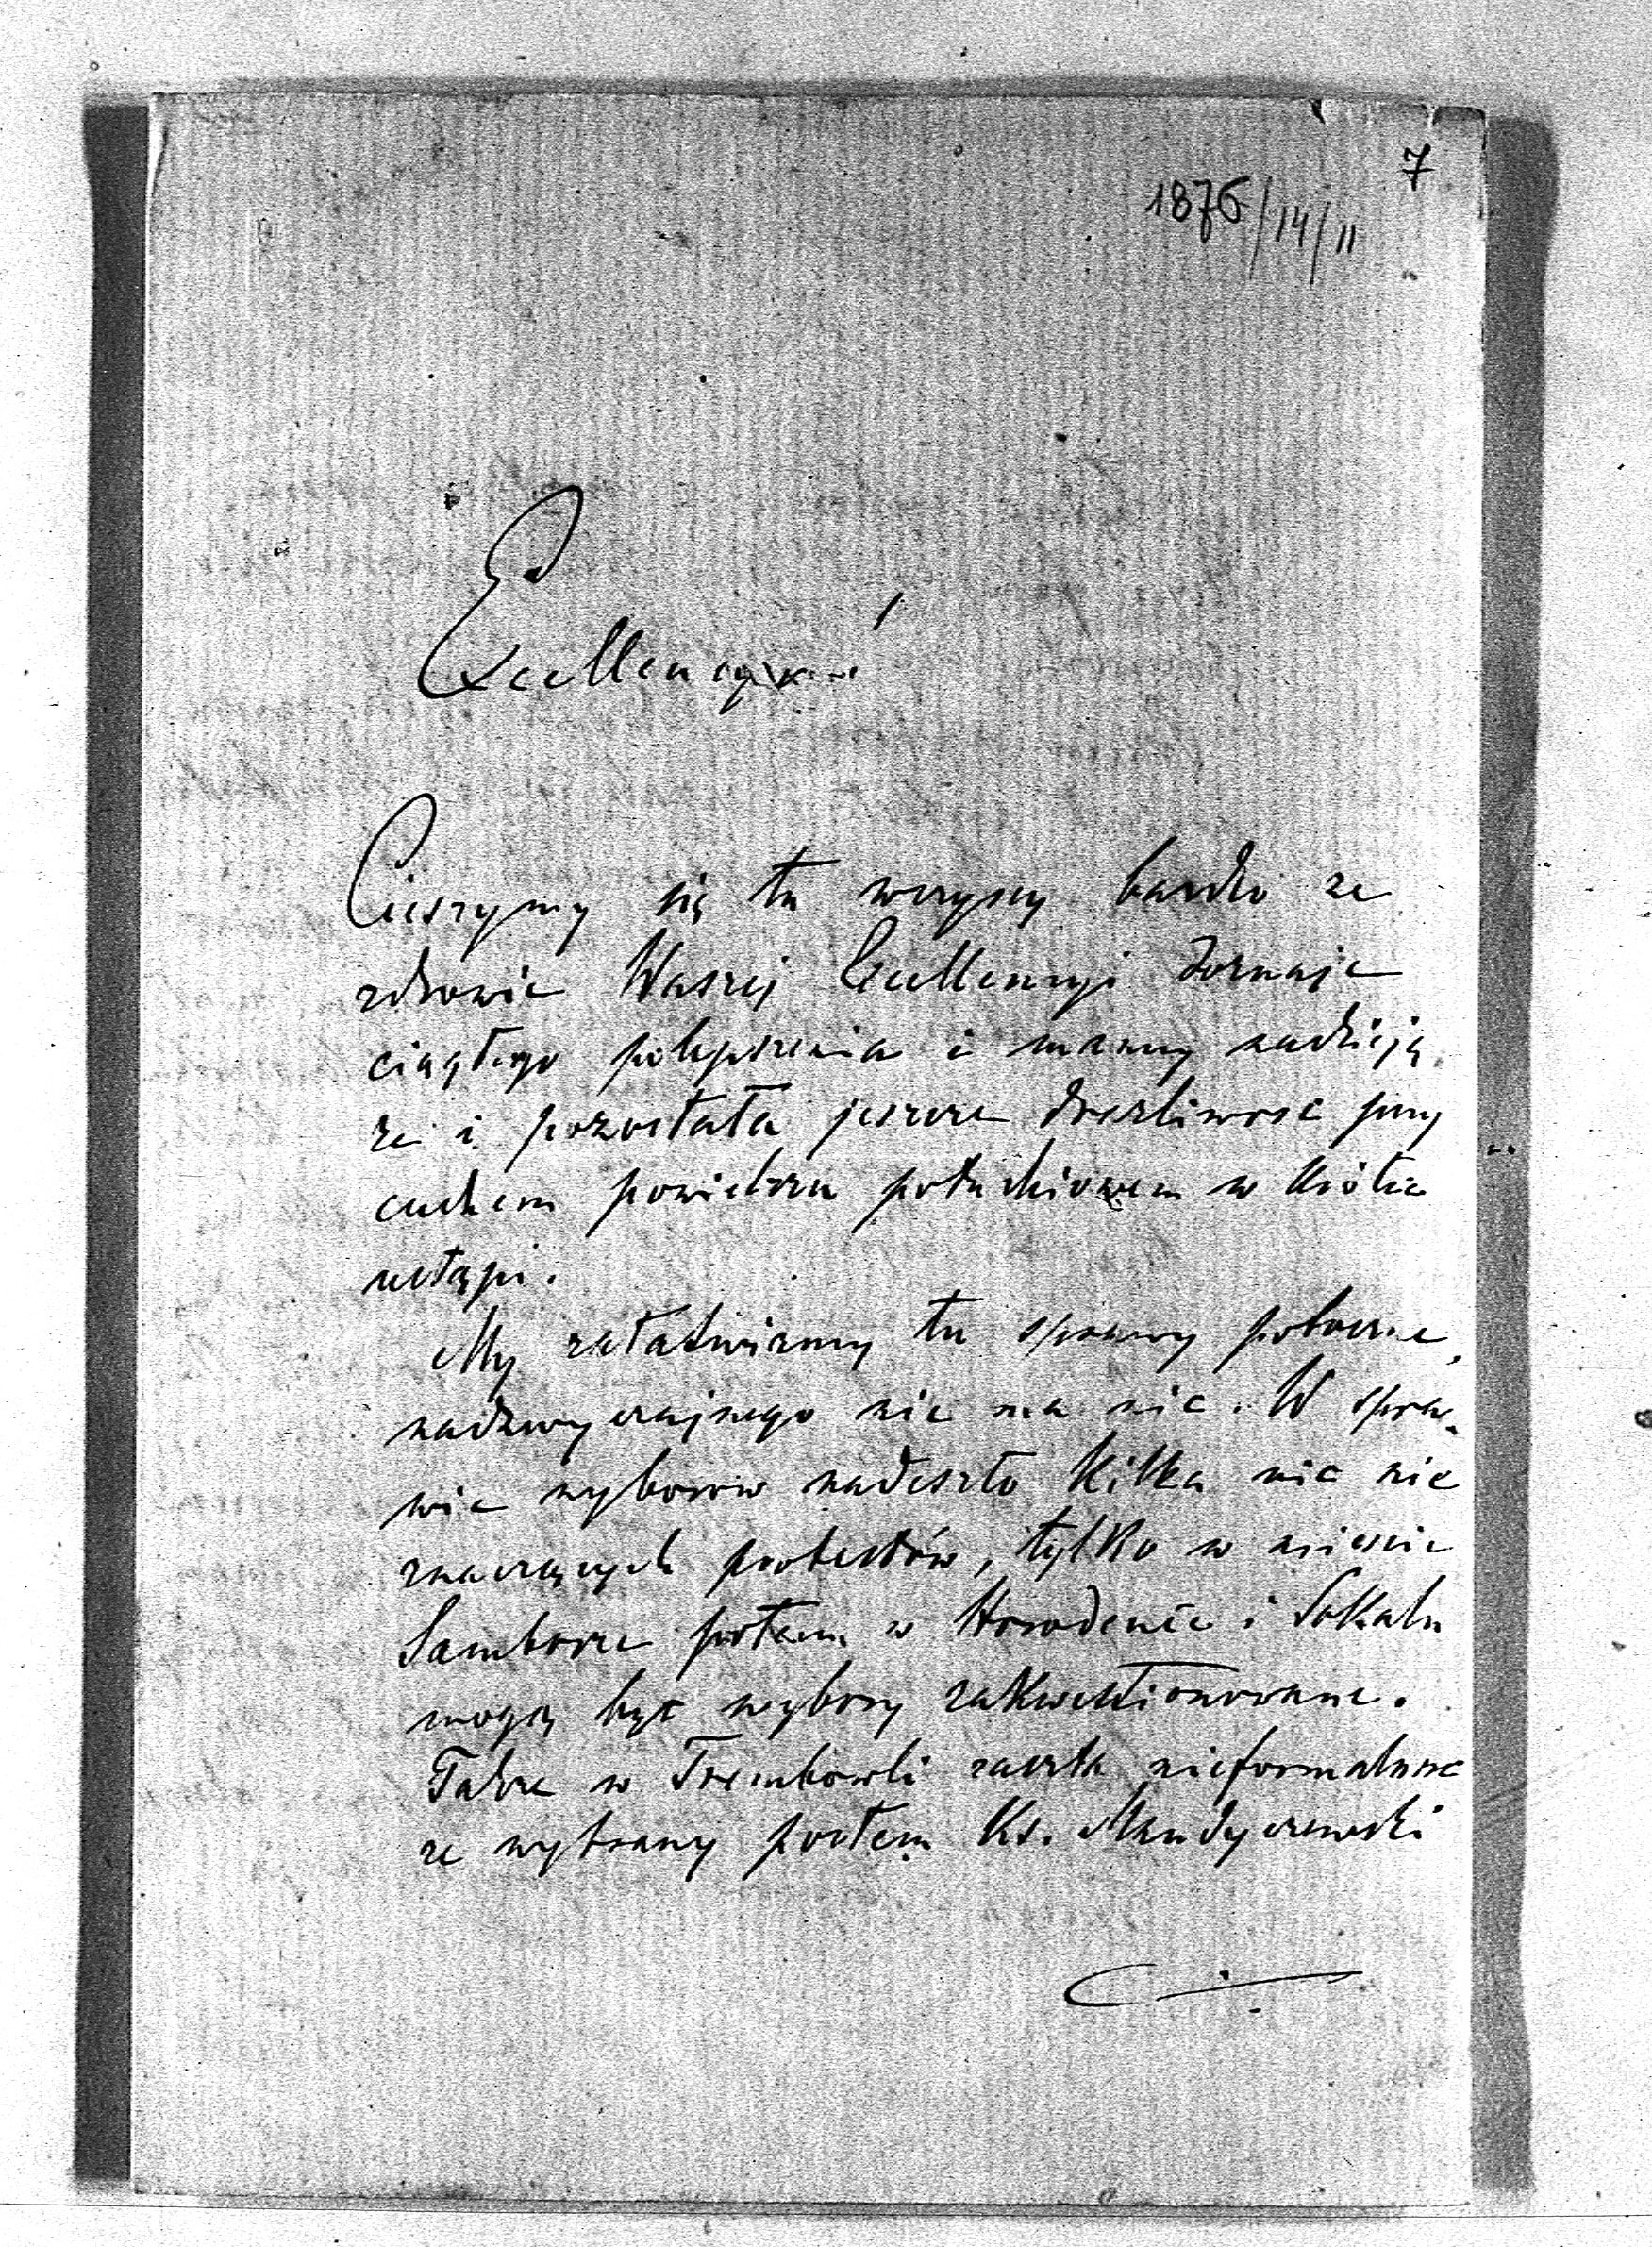 7
1876/14/11
Excellencyo!
Cieszymy się tu wszyscy bardzo ze
zdrowie Waszej Excellencyi doznaje
ciągłego polepszenia i mamy nadzieję
ze i pozostała jeszcze drażliwosć przy
cudnem powietrzu południowem w krótce
ustąpi.
My załatwiamy tu sprawy potoczne,
nadzwyczajnego nie ma nic. W spra-
wie wyborow nadeszło kilka nic nie
znaczących protestów, tylko w miescie
Samborze potem w Horodence i Sokalu
mogą być wybory zakwestionowane.
Także w Trembowli zaszła nieformalnosc
ze wybrany posłem Ks. Mandyczewski